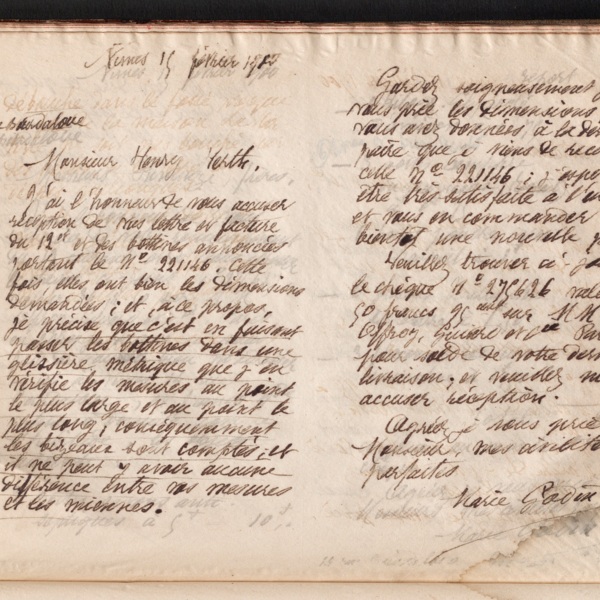 Nîmes 15 février 18
Monsieur Henry
J'ai l'honneur de vous accuser
réception de vos lettre et facture
du 12 et et des bottines annoncées
portant le No 221146. Cette
fois elles ont bien les dimensions
demandées; et, à ce propos,
je précise que c'est en faisant
passer les bottines dans une
glissière métrique que j'en
vérifie les mesures au point
le plus large et au point le
plus long; conséquemment
les biseaux sont comptés; et
il ne peut y avoir aucune
différence entre vos mesures
et les miennes.
Gardez soigneusement je
vous prie les dimensions
vous avez données à la der
paire que je viens de rece
celle No 221146; j'espè
être très satisfaite à l'u
et vous en commander
bientôt une nouvelle p
Veuillez trouver ci-jo
le chèque No 275626 vale
50 francs, 95 sur M M
Offroy, Guiard et Cie Par
pour solde de votre dern
livraison; et veuillez m'e
accuser réception.
Agréez je vous prie
Monsieur, mes civilité
parfaites
Marie Godin